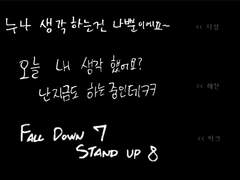 누나 생각하는건 나뿐이에요~
오늘 내 생각 했어요?
난 지금도 하는중인데ㅋㅋ
FALL DOWN 7
STAND UP 8